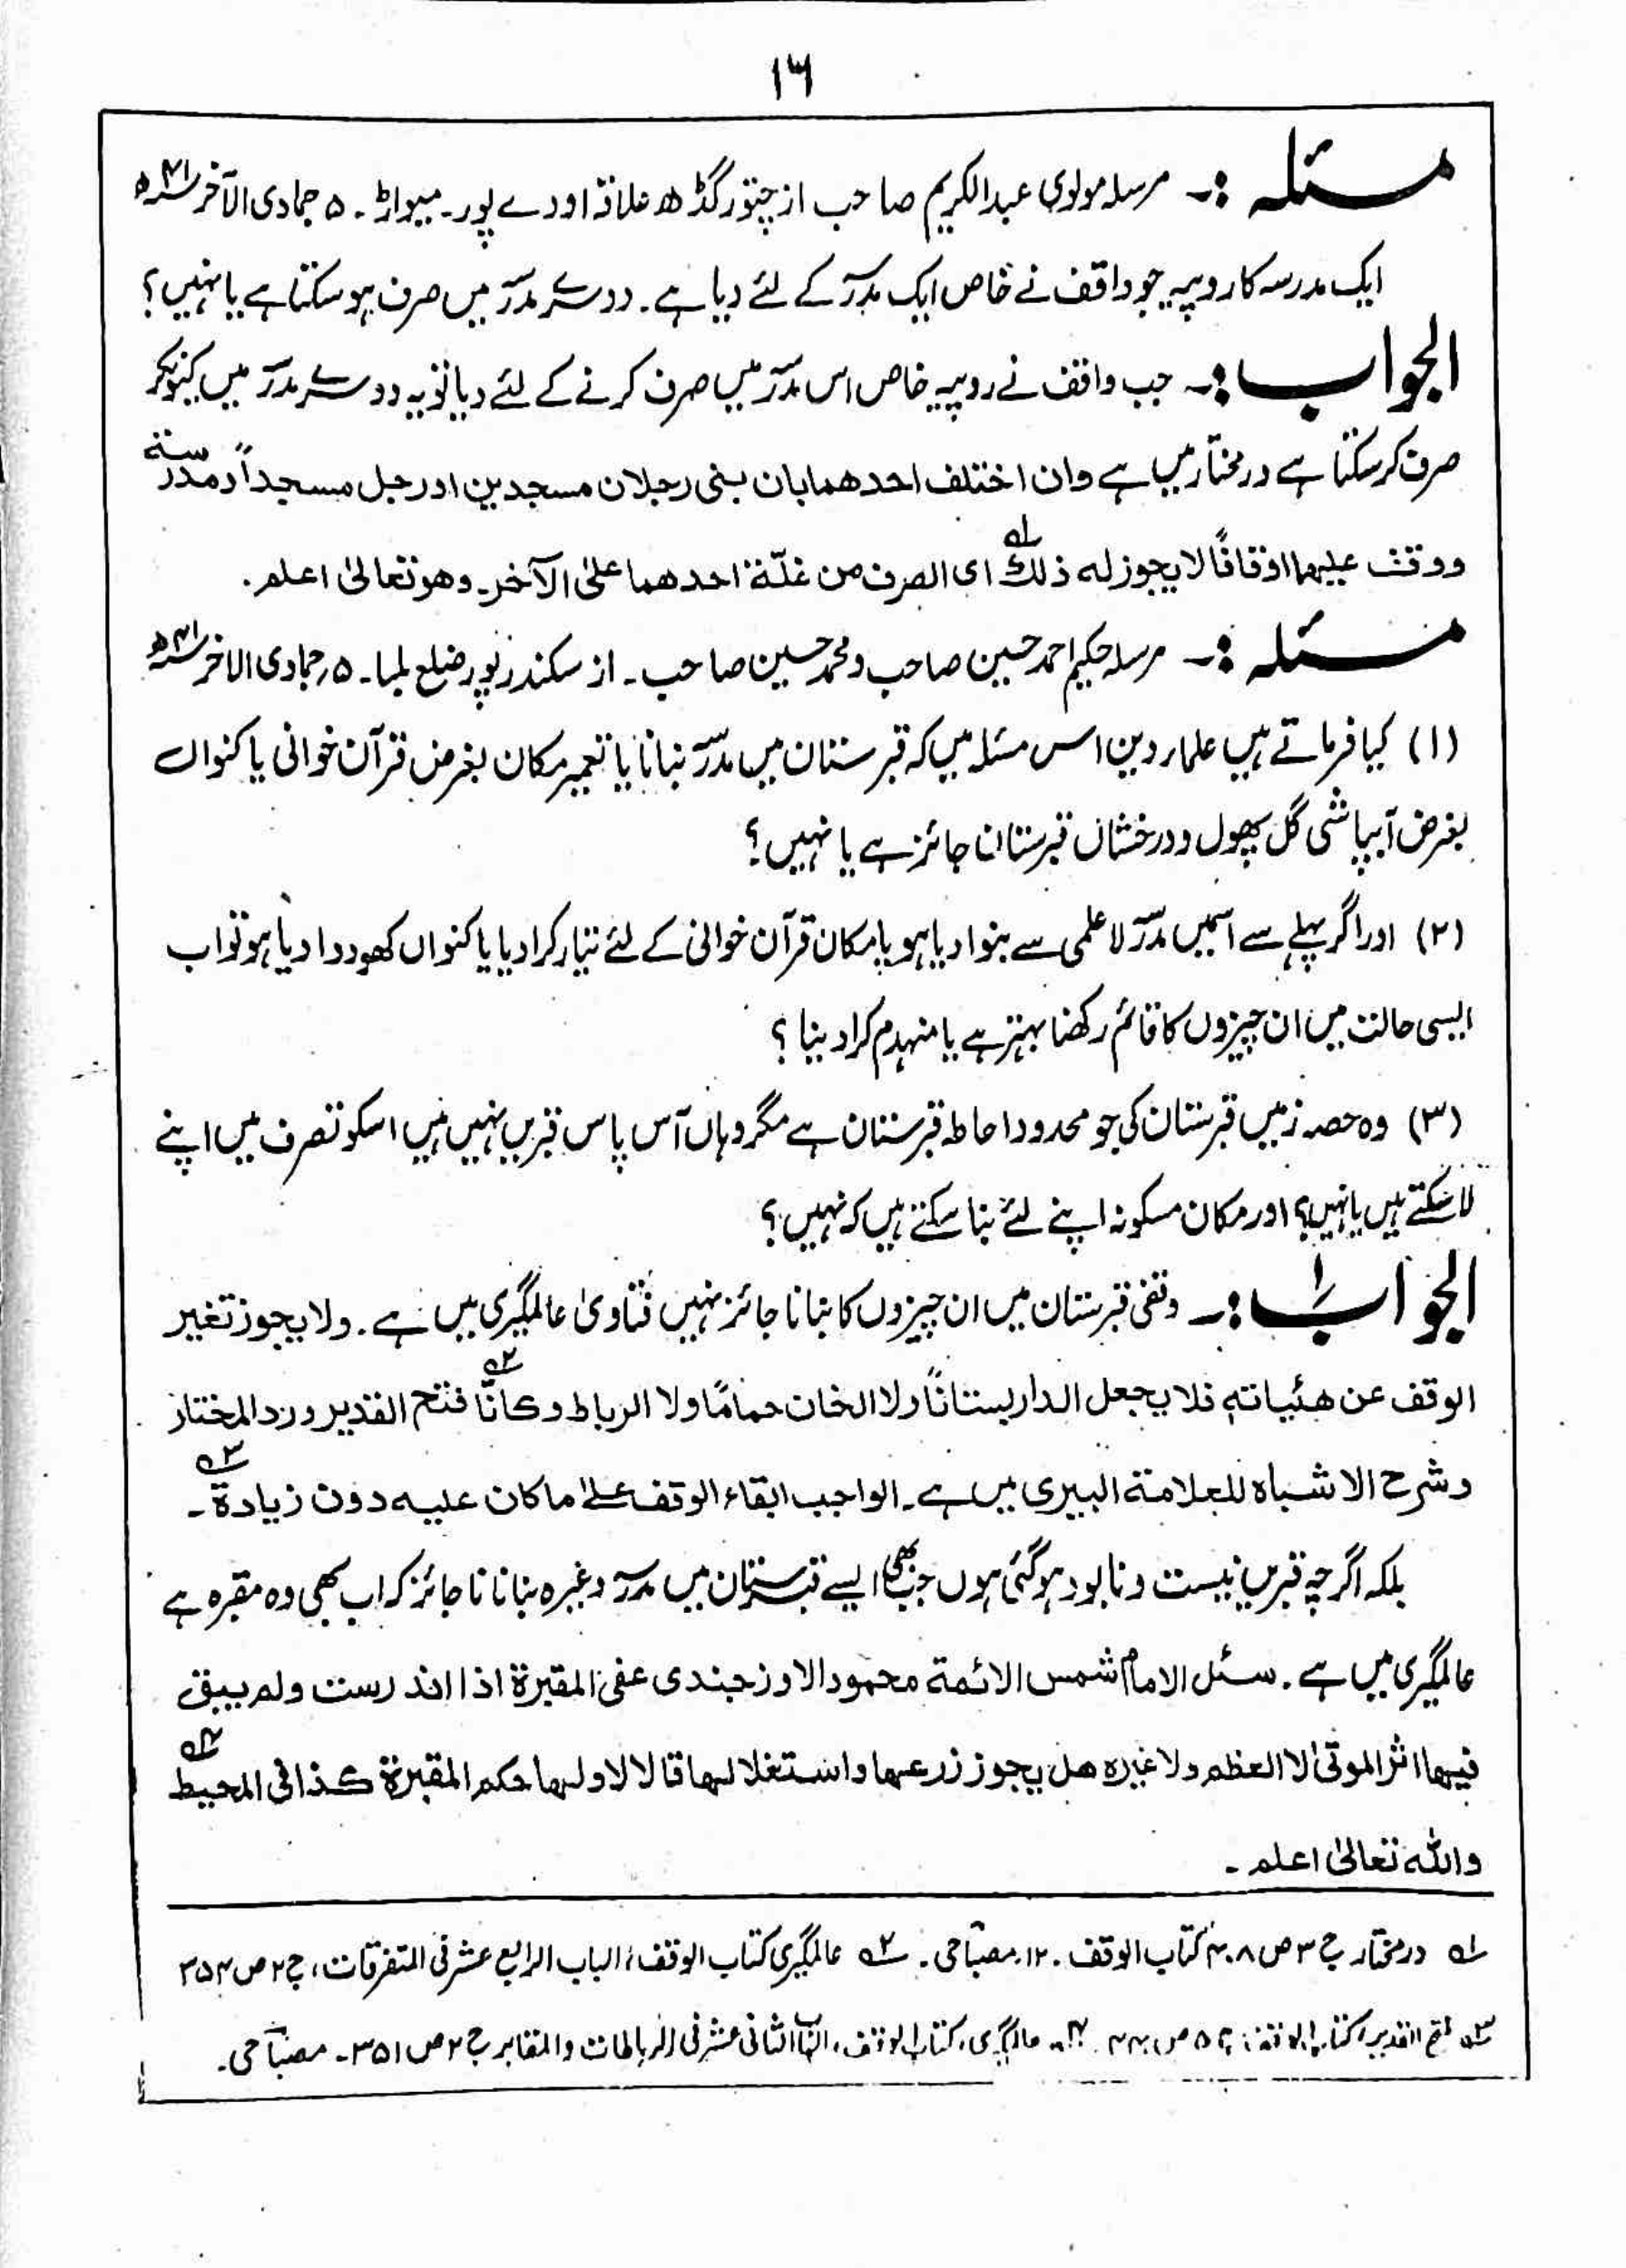 ۱۶
مسئلہ :۔ مرسلہ مولوی عبدالکریم صاحب از چتوڑ گڈھ علاقہ اودے پور۔ میواڑ۔ ۵ جمادی الآخر ۴۱ھ
ایک مدرسہ کا روپیہ جو واقف نے خاص ایک مدرسہ کے لئے دیا ہے۔ دوسرے مدرسہ میں صرف ہو سکتا ہے یا نہیں؟
الجواب :۔ جب واقف نے روپیہ خاص اس مدرسہ میں صرف کرنے کے لئے دیا تو یہ دوسرے مدرسہ میں کیونکر
صرف کر سکتا ہے درمختار میں ہے وان اختلف احدهما بان بنی رجلان مسجدین او رجل مسجداً ومدرسة
ووقف علیہما اوقافًا لا یجوز له ذلك ۱ه ای الصرف من غلّة احدهما علیٰ الآخر۔ وھو تعالیٰ اعلم۔
مسئلہ :۔ مرسلہ حکیم احمد حسین صاحب و محمد حسین صاحب۔ از سکندر پور ضلع بلیا۔ ۵ر جمادی الاخر ۴۱ھ
(۱) کیا فرماتے ہیں علماء دین اس مسئلہ میں کہ قبرستان میں مدرسہ بنانا یا تعمیر مکان بغرض قرآن خوانی یا کنواں
بغرض آبپاشی گل پھول و درختاں قبرستان جائز ہے یا نہیں؟
(۲) اور اگر پہلے سے اسمیں مدرسہ لاعلمی سے بنوا دیا ہو یا مکان قرآن خوانی کے لئے تیار کرا دیا یا کنواں کھودوا دیا ہو تو اب
ایسی حالت میں ان چیزوں کا قائم رکھنا بہتر ہے یا منہدم کرا دینا؟
(۳) وہ حصہ زمین قبرستان کی جو محدود احاطہ قبرستان ہے مگر وہاں آس پاس قبریں نہیں ہیں اسکو تصرف میں اپنے
لا سکتے ہیں یا نہیں؟ اور مکان مسکونہ اپنے لئے بنا سکتے ہیں کہ نہیں؟
الجواب ۱ :۔ وقفی قبرستان میں ان چیزوں کا بنانا جائز نہیں فتاویٰ عالمگیری میں ہے۔ ولا یجوز تغیر
الوقف عن هئیاته فلا یجعل الدار بستانًا ولا الخان حمامًا ولا الرباط دکانًا ۲ه فتح القدیر و ردالمختار
و شرح الاشباہ للعلامة البیری میں ہے۔ الواجب ابقاء الوقف علیٰ ما کان علیه دون زیادة ۳ه۔
بلکہ اگرچہ قبریں نیست و نابود ہو گئی ہوں جب بھی ایسے قبرستان میں مدرسہ وغیرہ بنانا ناجائز کہ اب بھی وہ مقبرہ ہے
عالمگیری میں ہے۔ سئل الامام شمس الائمة محمود الاوزجندی عن المقبرة اذا اندرست ولم یبق
فیها اثر الموتیٰ لا العظم ولا غیره هل یجوز زرعها واستغلالها قال لا ولها حکم المقبرة کذا فی المحیط ۴ه
واللّٰه تعالیٰ اعلم۔
۱ه درمختار ج ۳ ص ۴۰۸ کتاب الوقف۔ ۱۲۔ مصباحی۔ ۲ه عالمگیری کتاب الوقف، الباب الرابع عشر فی المتفرقات، ج ۲ ص ۳۵۴
۳ه فتح القدیر، کتاب الوقف، ج ۵ ص ۴۴۰ ۴ه عالمگیری، کتاب الوقف، الباب الثانی عشر فی الرباطات والمقابر ج ۲ ص ۳۵۱۔ مصباحی۔